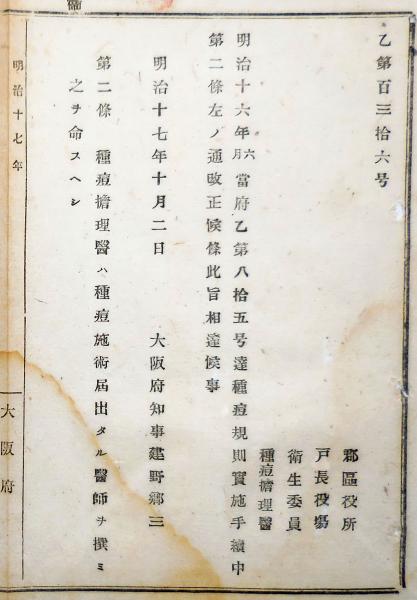 乙第百三拾六号
郡區役所
戸長役場
衛生委員
種痘擔理醫
明治十六年六月當府乙第八拾五号達種痘規則實施手續中
第二條左ノ通改正候條此旨相達候事
明治十七年十月二日　大阪府知事建野郷三
第二條　種痘擔理醫ハ種痘施術届出タル醫師ヲ撰ミ
之ヲ命スヘシ
明治十七年
大阪府